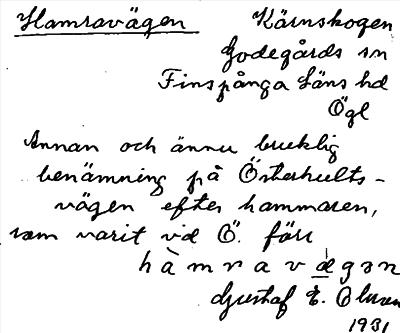 Hamravägen Kärnskogen
Godegårds sn
Finspånga Läns hd
Ögl
Annan och ännu bruklig
benämning på Österhults-
vägen efter hammaren,
som varit vid Ö. förr
hàmravægən
Gustaf E. Olsson
1931